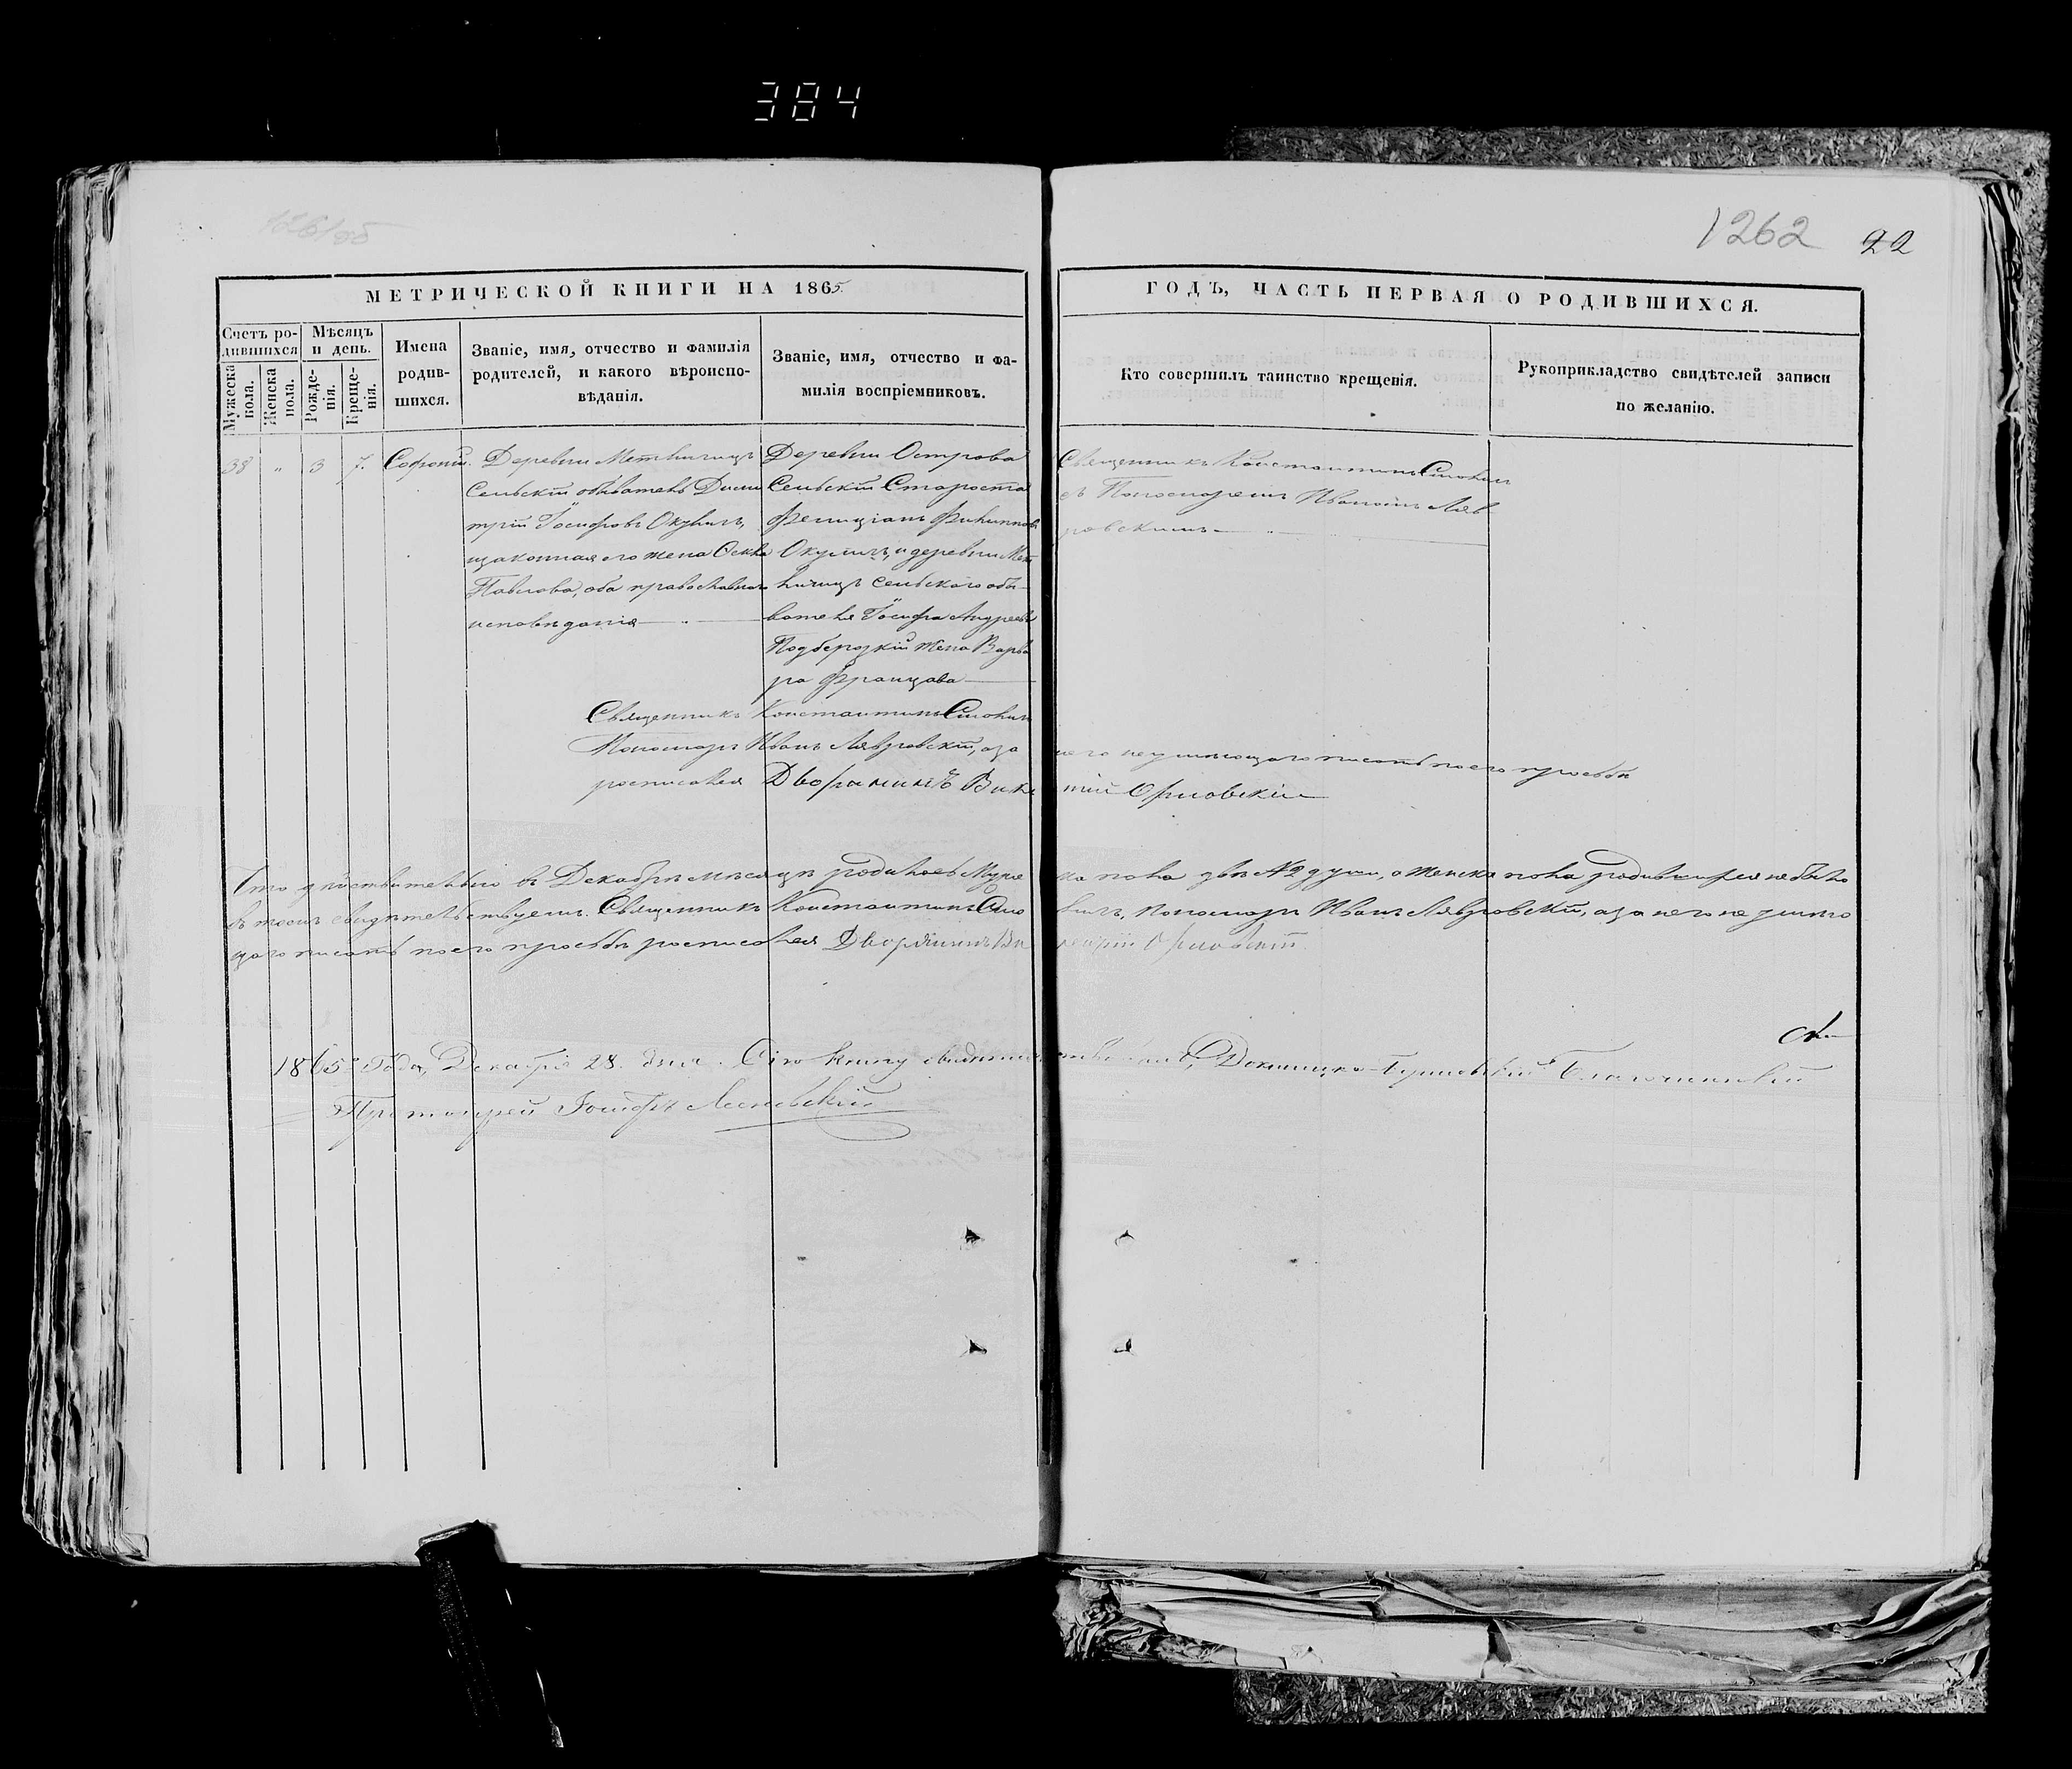 384
1261об
1262 22
МЕТРИЧЕСКОЙ КНИГИ НА 1865
ГОДЪ, ЧАСТЬ ПЕРВАЯ О РОДИВШИХСЯ.
Счетъ ро-
дившихся
Мужеска
пола.
Женска
пола.
Мѣсяцъ
и день.
Рожде-
нія.
Креще-
нія.
Имена
родив-
шихся.
Званіе, имя, отчество и фамилія
родителей, и какого вѣроиспо-
вѣданія.
Званіе, имя, отчество и фа-
милія воспріемниковъ.
Кто совершилъ таинство крещенія.
Рукоприкладство свидѣтелей записи
по желанію.
38 " 3 7. Софроній.
Деревни
Сельскій обыватель Дими
трій Іосифовъ Окуличъ,
и законная его жена
Павлова, оба православнаго
исповѣданія
Деревни Острова
Сельскій Староста
Фелиціанъ Филиповъ
Окуличъ, и деревни Мет
личицъ сельского обы-
вателя Іосифа Андреева
жена Варва
ра Францова
Священникъ Константинъ
съ Пономаремъ Иваномъ Ляв
ровскимъ
Священникъ Константинъ
Пономарь Иванъ Лявровскій, а за него неумѣющаго писать по его прозьбѣ
росписался Дворянинъ Орловскій
Что дѣйствительно въ Декабрѣ мѣсяцѣ родилось Муже ска пола двѣ № 2 души, а женска пола родившихся не было
въ томъ свидѣтельствуемъ. Священникъ Константинъ Пономарь Иванъ Лявровскій, а за него не умѣю
щаго писать по его прозьбѣ росписался Дворянинъ Орловскій
1865 года, Декабря 28. дня. Сію книгу свидѣтельствовалъ, Благочинный
Протоіерей Іосифъ